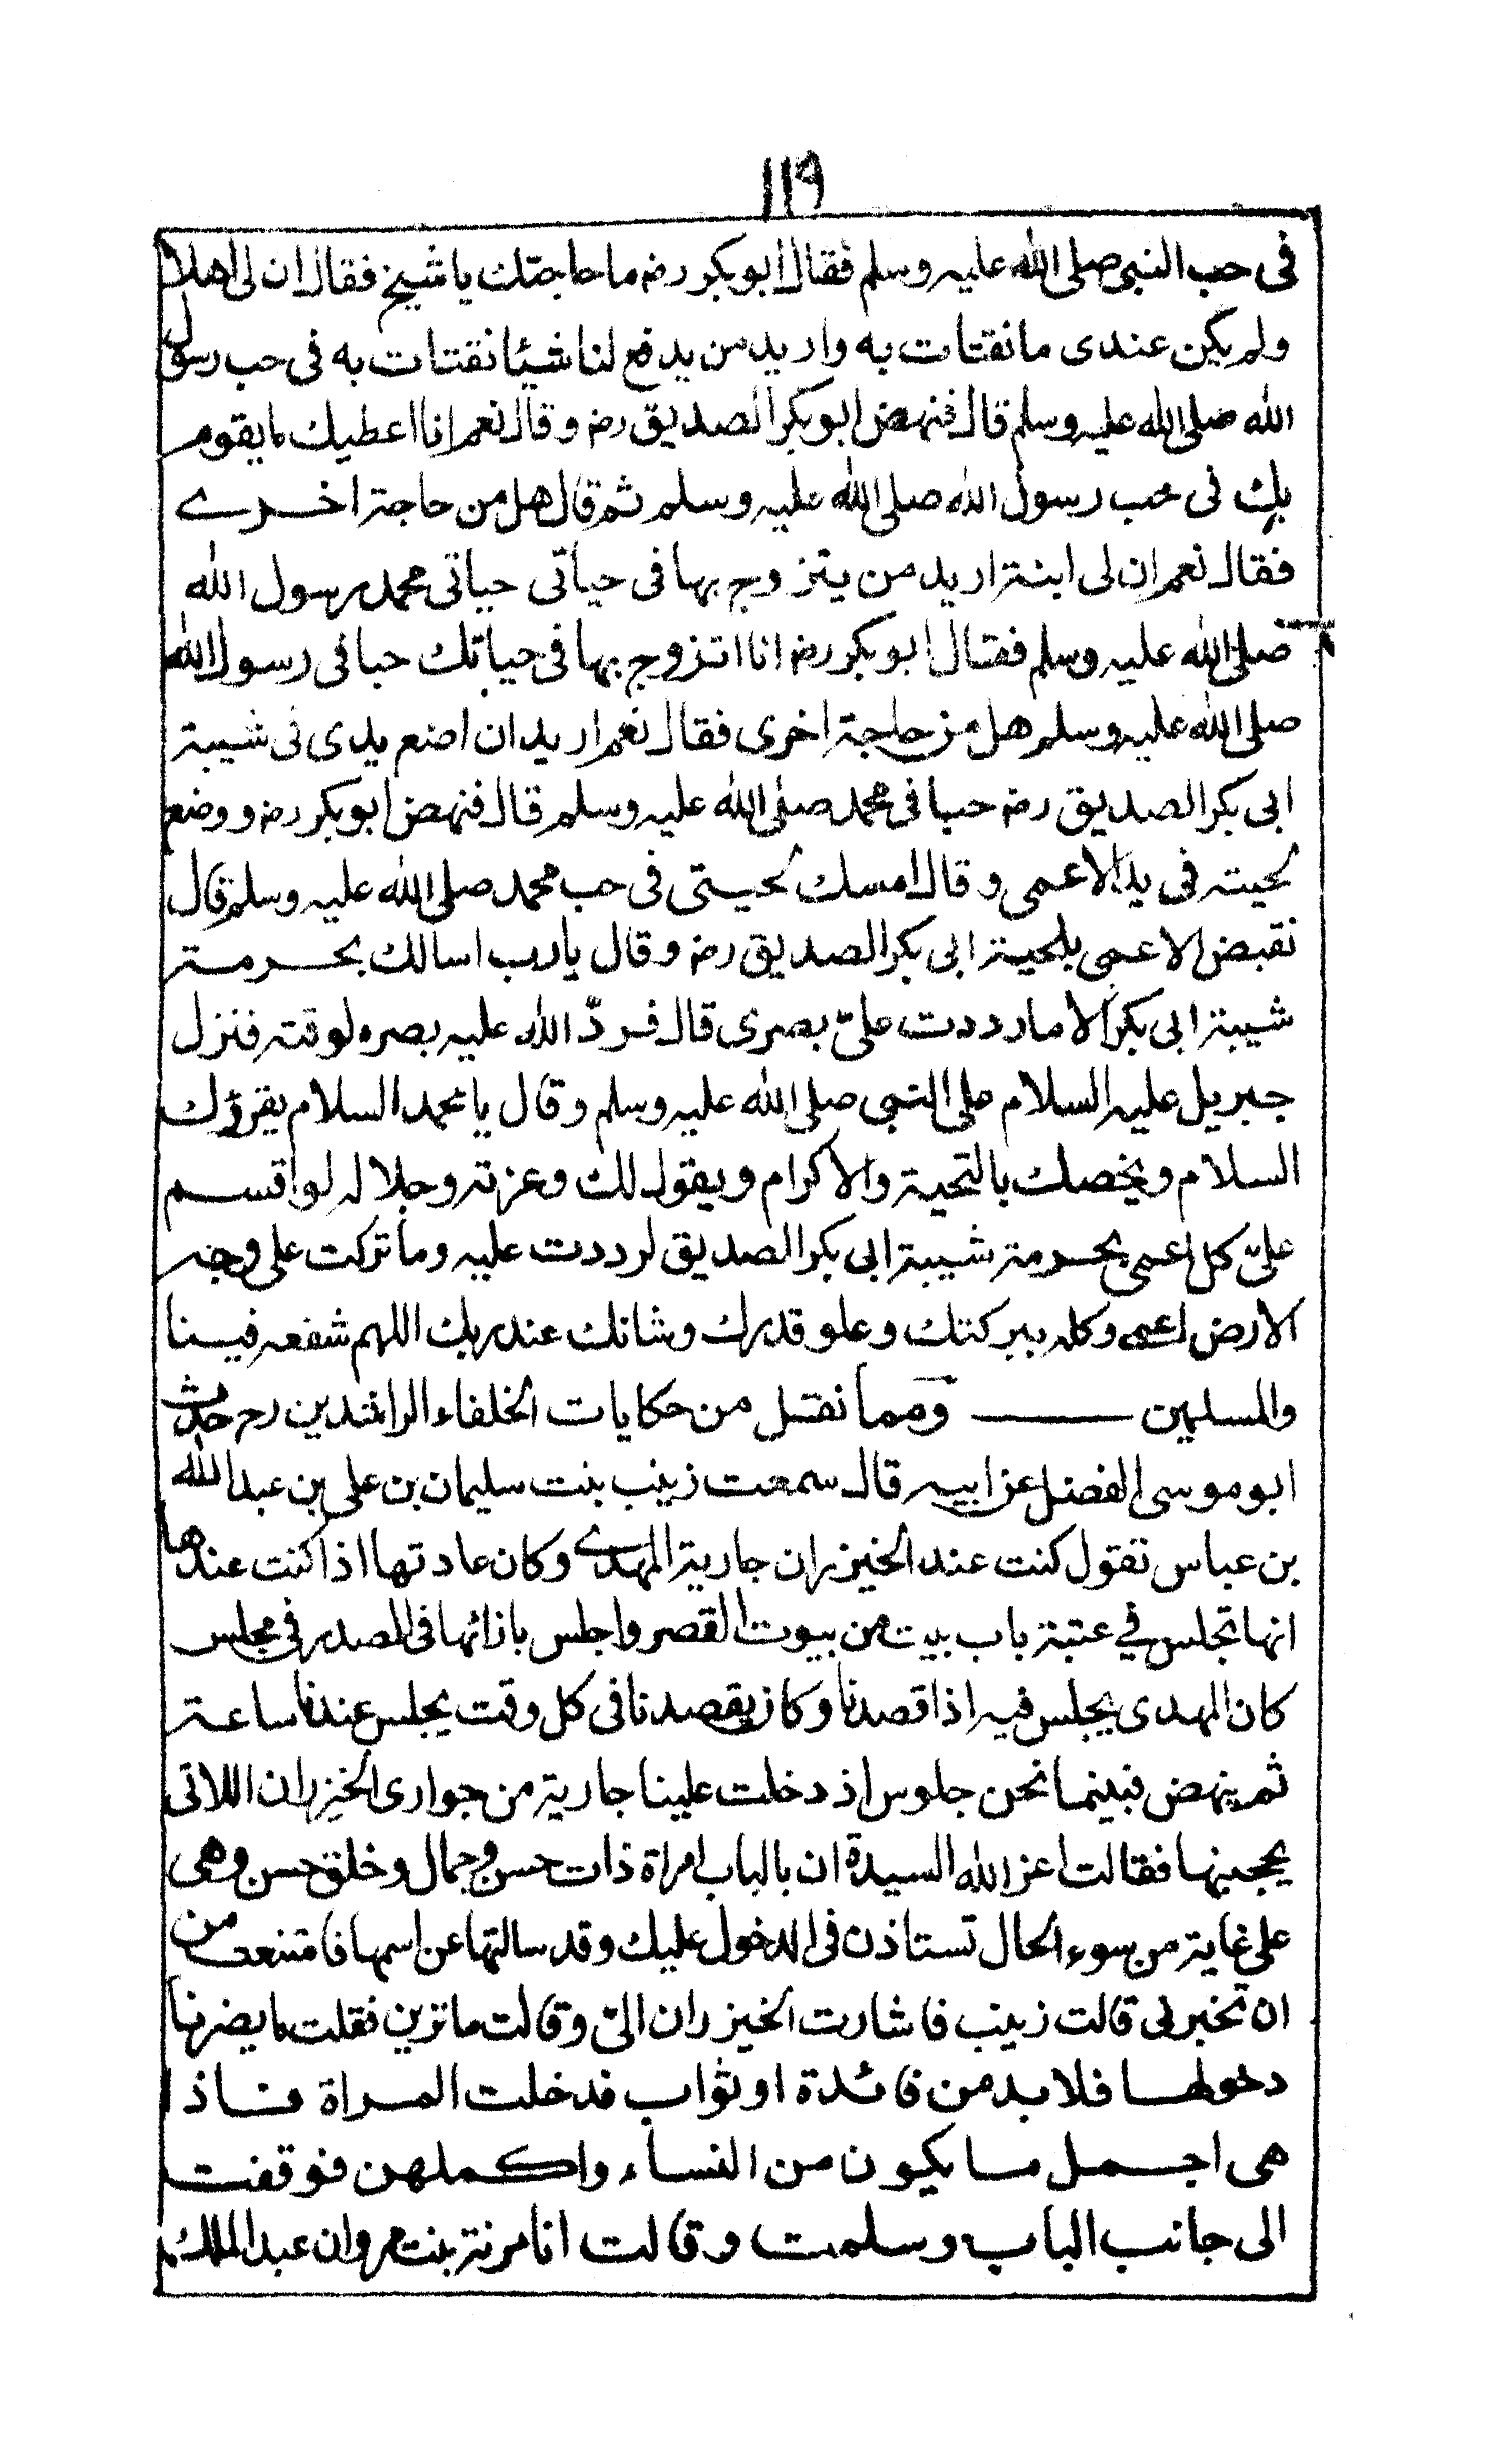 ١١٩
فى حب النبى صلى الله عليه وسلم فقال ابوبكر رضـ ما حاجتك يا شيخ فقال ان لى اهلا
ولم يكن عندى ما نقتات به واريد من يدفع لنا شيئا نقتات به فى حب رسول
الله صلى الله عليه وسلم قال فنهض ابوبكر الصديق رضـ وقال نعم انا اعطيك ما يقوم
بك فى حب رسول الله صلى الله عليه وسلم ثم قال هل من حاجة اخرے
فقال نعم ان لى ابنة اريد من يتزوج بها فى حياتى حياتى محمد رسول الله
صلى الله عليه وسلم فقال ابوبكر رضـ انا اتزوج بها فى حياتك حبا فى رسول الله
صلى الله عليه وسلم هل من حاجة اخرى فقال نعم اريد ان اضع يدى فى شيبة
ابى بكر الصديق رضـ حبا فى محمد صلى الله عليه وسلم قال فنهض ابوبكر رضـ ووضع
لحيته فى يد الاعمى وقال امسك لحيتى فى حب محمد صلى الله عليه وسلم قال
نقبض الاعمى بلحية ابى بكر الصديق رضـ وقال يا رب اسالك بحرمة
شيبة ابى بكر الا ما رددت علىّ بصرى قال فردّ الله عليه بصره لوقته فنزل
جبريل عليه السلام على النبى صلى الله عليه وسلم وقال يا محمد السلام يقرؤك
السلام ويخصك بالتحية والاكرام ويقول لك وعزته وجلاله لو اقسم
علىّ كل اعمى بحرمة شيبة ابى بكر الصديق لرددت عليه وما تركت على وجه
الارض اعمى وكله ببركتك وعلو قدرك وشانك عند ربك اللهم شفعه فينا
والمسلمين ــــــ ومما نقل من حكايات الخلفاء الراشدين رح حدث
ابو موسى الفضل عن ابيه قال سمعت زينب بنت سليمان بن على بن عبد الله
بن عباس تقول كنت عند الخيزران جارية المهدے وكان عادتها اذا كنت عندها
انها تجلس فى عتبة باب بيت من بيوت القصر واجلس بازائها فى الصدر فى مجلس
كان المهدى يجلس فيه اذا قصدنا وكان يقصدنا فى كل وقت يجلس عندنا ساعة
ثم ينهض فبينما نحن جلوس اذ دخلت علينا جارية من جوارى الخيزران اللاتى
يحجبنها فقالت اعز الله السيدة ان بالباب امراة ذات حسن وجمال وخلق حسن وهى
على غاية من سوء الحال تستاذن فى الدخول عليك وقد سالتها عن اسمها فامتنعت من
ان تخبرنى قالت زينب فاشارت الخيزران الىّ وقالت ما ترين فقلت ما يضرنا
دخولها فلا بد من فائدة او ثواب فدخلت المراة فاذا
هى اجمل ما يكون من النساء واكملهن فوقفت
الى جانب الباب وسلمت وقالت انا مزنة بنت مروان عبد الملك